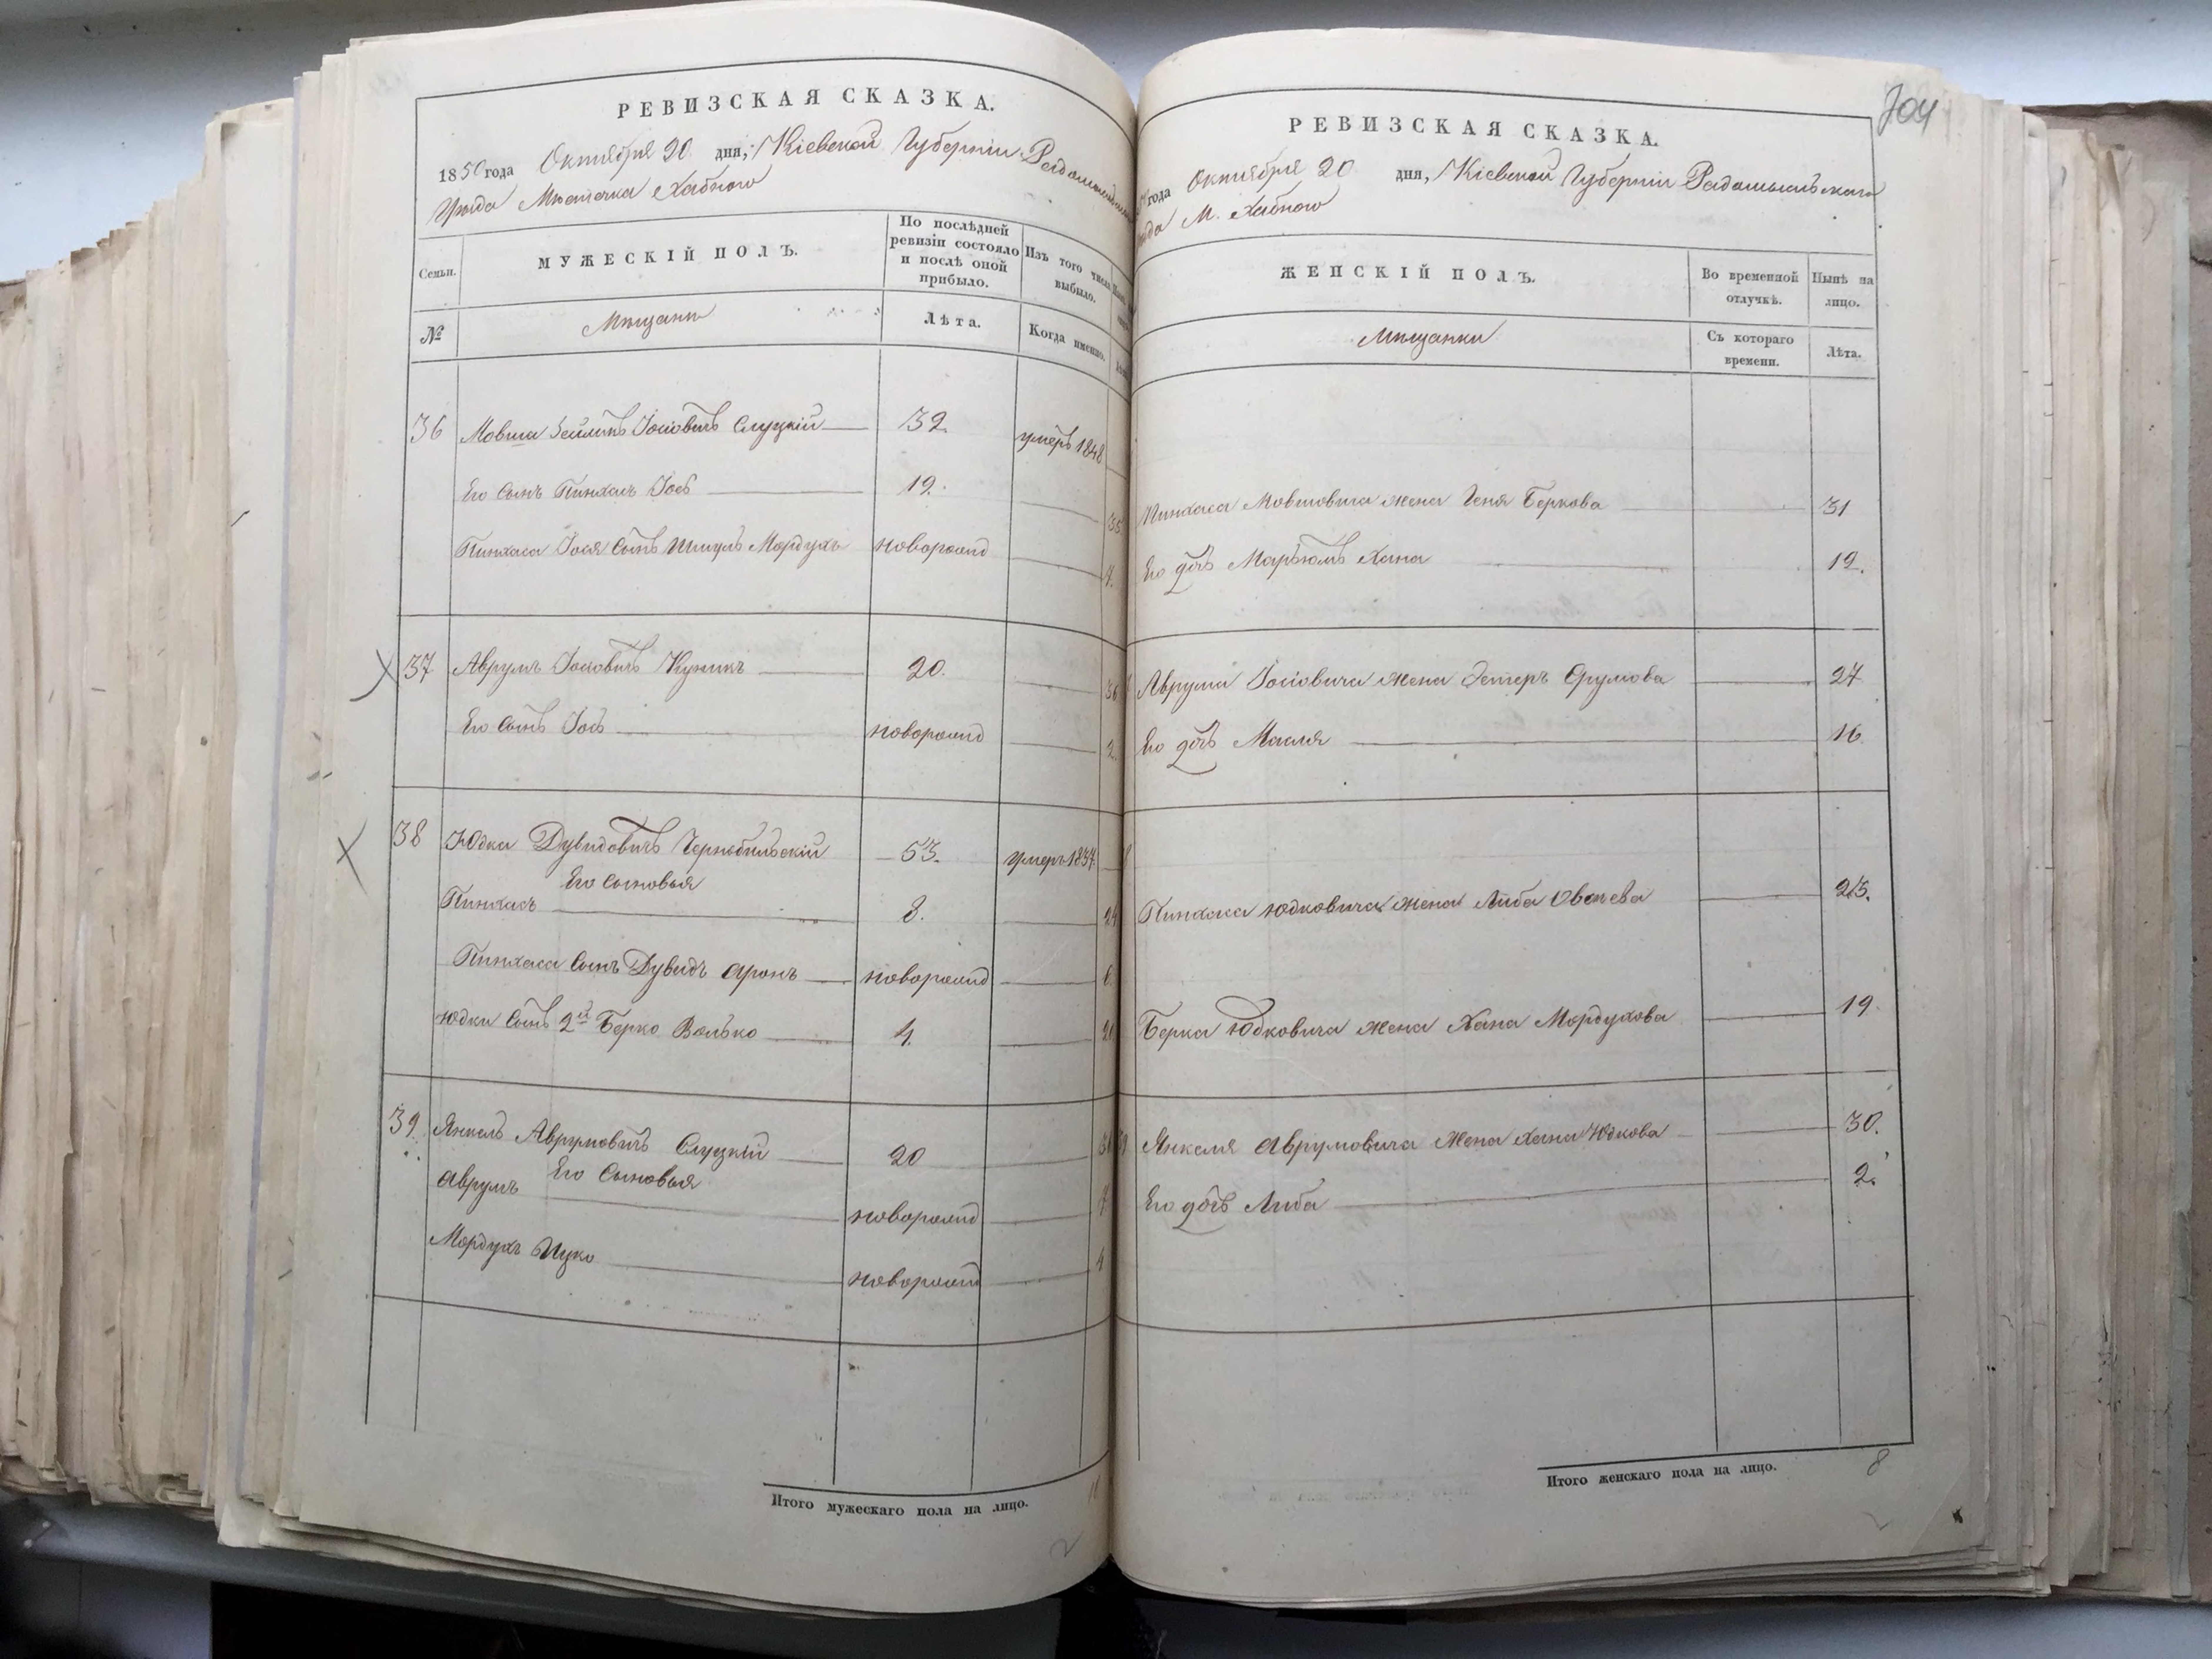 РЕВИЗСКАЯ СКАЗКА.
1850 года Октября 20 дня, Кіевской Губерніи Радомысльскаго
Уѣзда Мѣстечка Хабного
Семьи.
МУЖЕСКІЙ ПОЛЪ.
По послѣдней ревизіи состояло и послѣ оной прибыло.
Изъ того числа выбыло.
№
Мѣщани
Лѣта.
Когда именно.
36 Мовша Зейликъ Іосіовичъ Слуцкій 32 умеръ 1848
Его Сынъ Пинхасъ Іось 19. 35
Пинхаса Іося Сынъ Шмуль Мордухъ новорожд 7.
37 Аврумъ Іосіовичъ Куникъ 20. 36
Его Сынъ Іось новорожд 2.
38 Юдка Дувидовичъ Чернобыльскій 53. умеръ 1837.
Его Сыновья
Пинхасъ 8. 24
Пинхаса Сынъ Дувидъ Аронъ новорожд 6
Юдки Сынъ 2й Берко Волько 4. 20
39. Янкель Аврумовичъ Слуцкій 20 36
Его Сыновья
Аврумъ новорожд 7
Мордухъ Ицко новорожд 4
Итого мужескаго пола на лицо. 10
2
704
РЕВИЗСКАЯ СКАЗКА.
года Октября 20 дня, Кіевской Губерніи Радомысльскаго
М. Хабного
ЖЕНСКІЙ ПОЛЪ.
Во временной отлучкѣ.
Нынѣ на лицо.
Мѣщанки
Съ котораго времени.
Лѣта.
Пинхаса Мовшовича жена Геня Беркова 31
Его дочь Марьямъ Хана 12.
Аврума Іосіовича жена Эстеръ Срумова 27
Его дочь Масля 16
Пинхаса Юдковича жена Либа Овсиева 25.
Берка Юдковича жена Хана Мордухова 19.
Янкеля Аврумовича жена Хана Юдкова 30.
Его дочь Либа 2.
Итого женскаго пола на лицо. 8